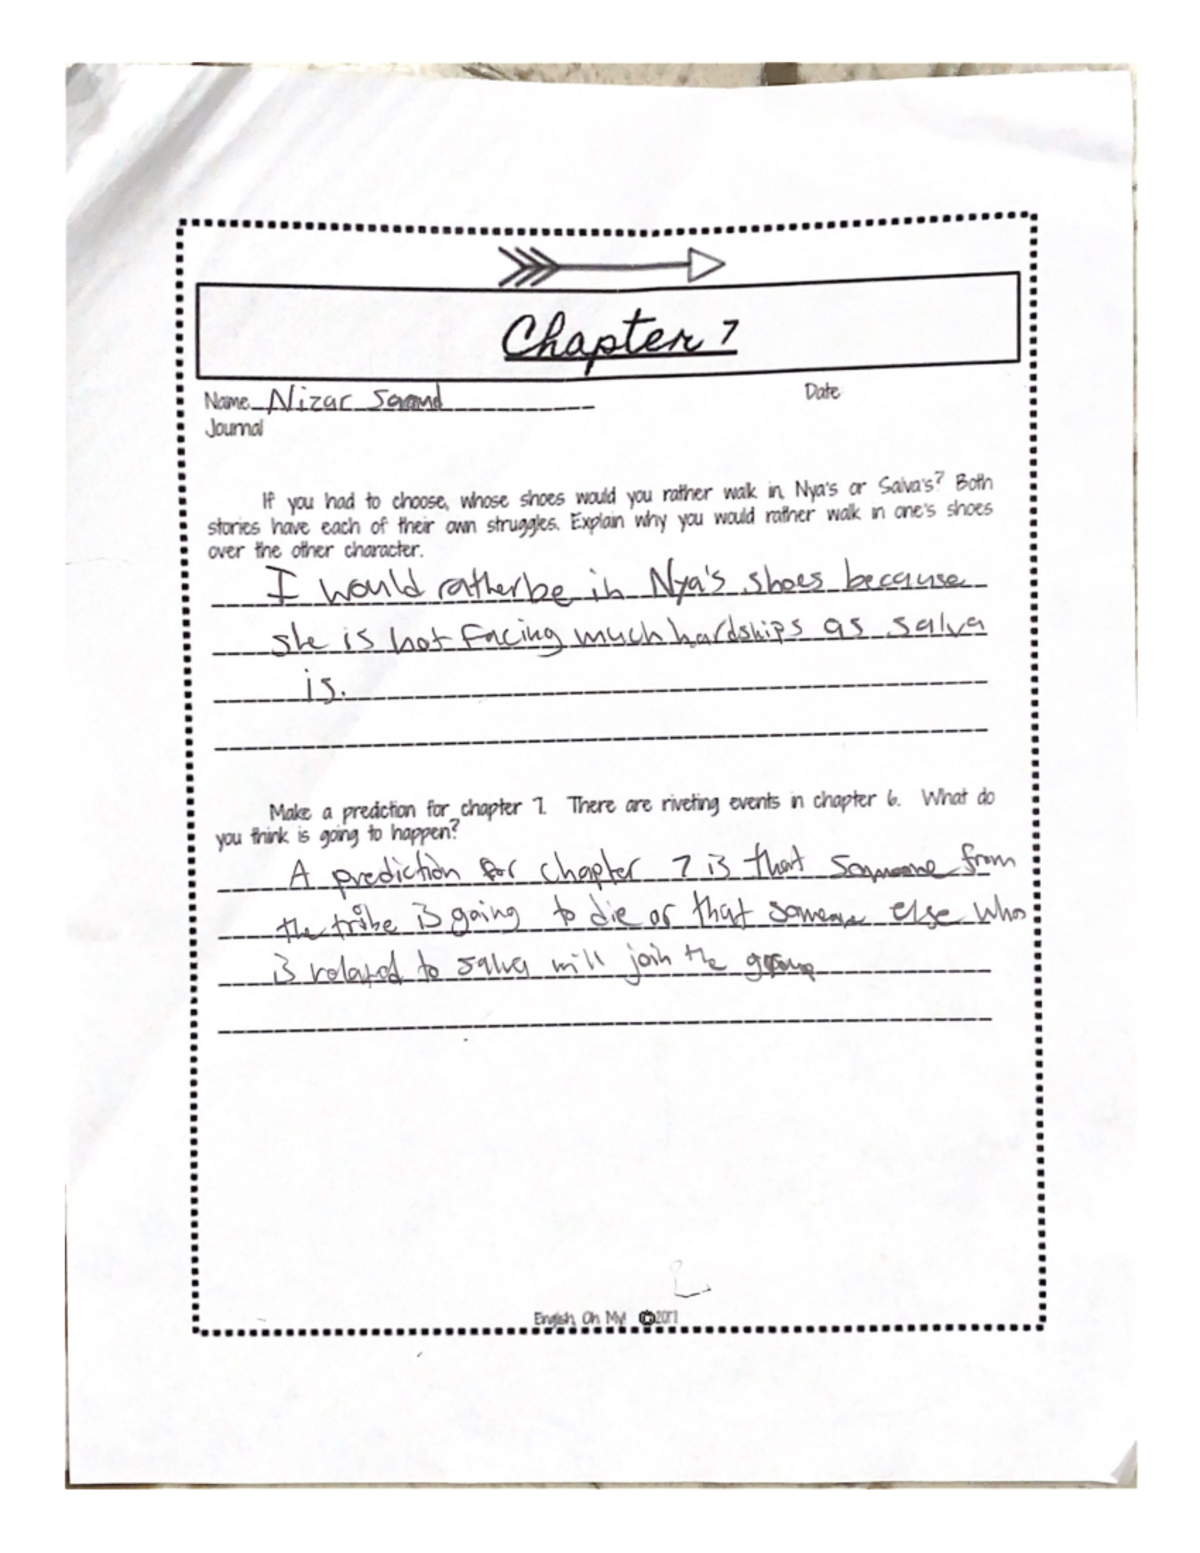 Chapter 7
Name Nizar Saand
Date
Journal
If you had to choose, whose shoes would you rather walk in, Nya's or Salva's? Both
stories have each of their own struggles. Explain why you would rather walk in one's shoes
over the other character.
I would rather be in Nya's shoes because
she is not facing much hardships as salva
is.
Make a prediction for chapter 7. There are riveting events in chapter 6. What do
you think is going to happen?
A prediction for chapter 7 is that someone from
the tribe is going to die or that someone else who
is related to salva will join the group
English, Oh My! ©2017